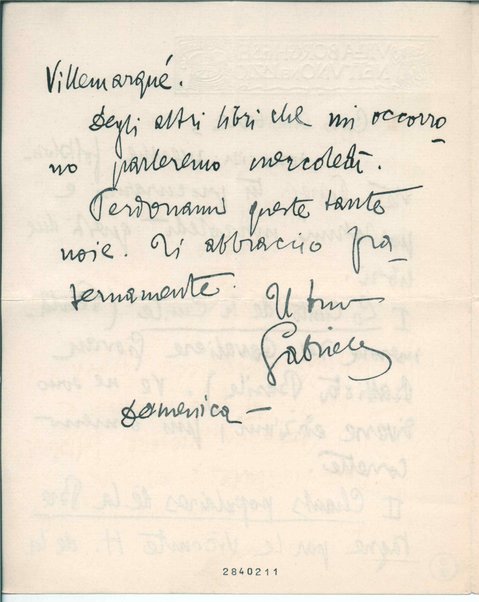 Villemarqué.
Degli altri libri che mi occorro-
no parleremo mercoledì.
Perdonami queste tante
noie. Ti abbraccio fra-
ternamente. Il tuo
Gabriele
Domenica —
2840211